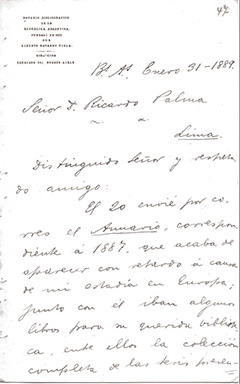 47
ANUARIO BIBLIOGRAFICO
DE LA
REPUBLICA ARGENTINA,
FUNDADO EN 1879
POR
ALBERTO NAVARRO VIOLA.
DIRECTOR
Bs As Enero 31-1889.
Señor D. Ricardo Palma
Lima
Distinguido Señor y respeta
do amigo:
El 20 envié por co-
rreo el Anuario, correspon
diente á 1887, que acaba de
aparecer con retardo á causa
de mi estadía en Europa;
junto con el iban algunos
libros para su querida bibliote
ca, entre ellos la colección
completa de las tesis presen-